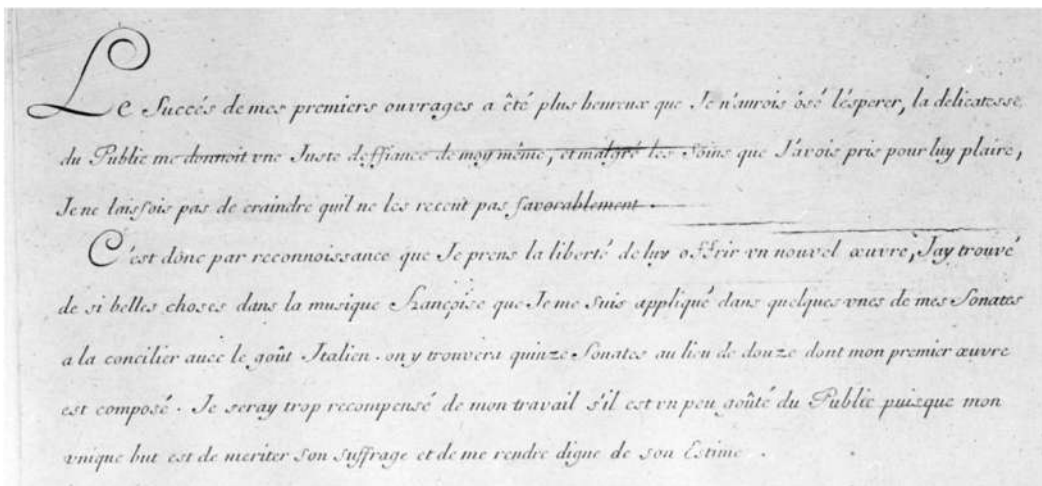 Le Succés de mes premiers ouvrages a êté plus heureux que Je n'aurois ôsé l'ésperer, la délicatesse
du Public me donnoit vne Juste deffiance de moy même, et malgré les Soins que J'avois pris pour luy plaire,
Je ne laissois pas de craindre quil ne les receut pas favorablement.
C'est donc par reconnoissance que Je prens la liberté de luy offrir vn nouvel œuvre, J'ay trouvé
de si belles choses dans la musique Françoise que Je me suis appliqué dans quelques vnes de mes Sonates
a la concilier avec le goût Italien. on y trouvera quinze Sonates au lieu de douze dont mon premier œuvre
est composé. Je seray trop recompensé de mon travail s'il est vn peu goûté du Public puisque mon
vnique but est de meriter son suffrage et de me rendre digne de son Estime.